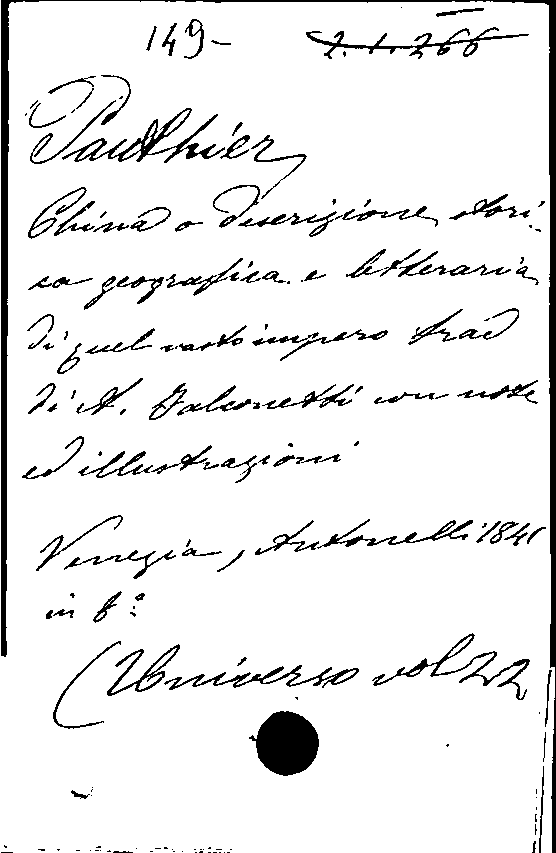 149- 2.1.266
Pauthier
China o descrizione stori-
ca geografica e letteraria
di quel vasto impero trad
di A. Falconetti con note
ed illustrazioni
Venezia, Antonelli 1841
in 8º
(Universo vol 22